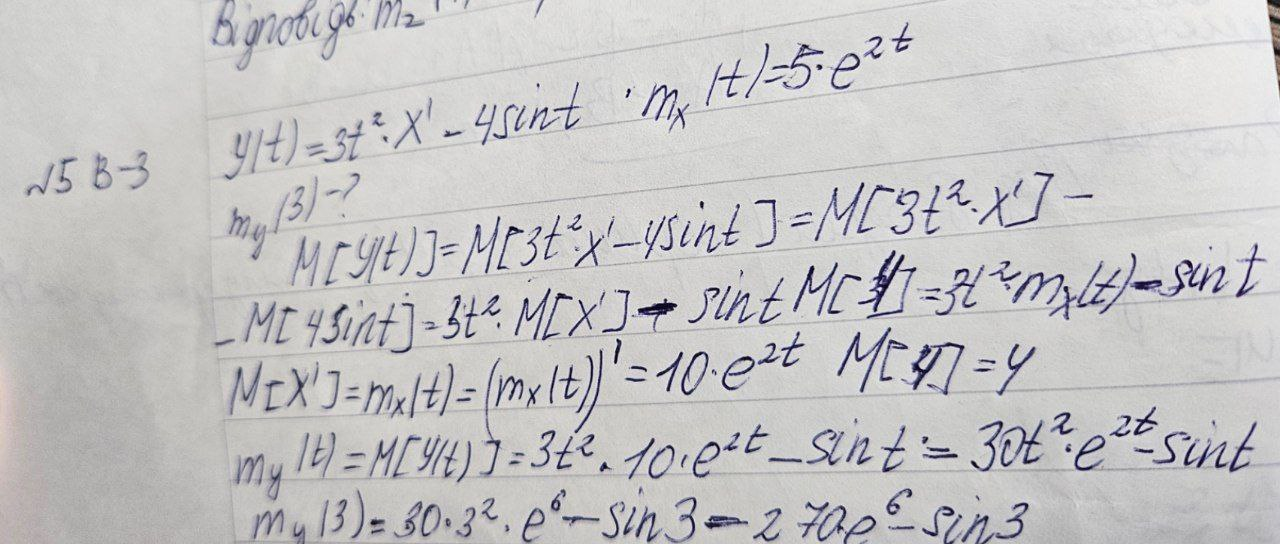 Відповідь: m₂
y(t)=3t²·X' - 4sint · mₓ(t)=5·e²ᵗ
√5 В-3
m_y(3)-?
M[Y(t)]=M[3t²·x'-4sint]=M[3t²·X'] -
- M[4sint]=3t²·M[X'] - sint M[4]=3t²·mₓ(t)-sint
M[X']=mₓ(t)=(mₓ(t))'=10·e²ᵗ M[4]=4
m_y(t)=M[Y(t)]=3t²·10·e²ᵗ-sint=30t²·e²ᵗ-sint
m_y(3)=30·3²·e⁶-sin3=270·e⁶-sin3